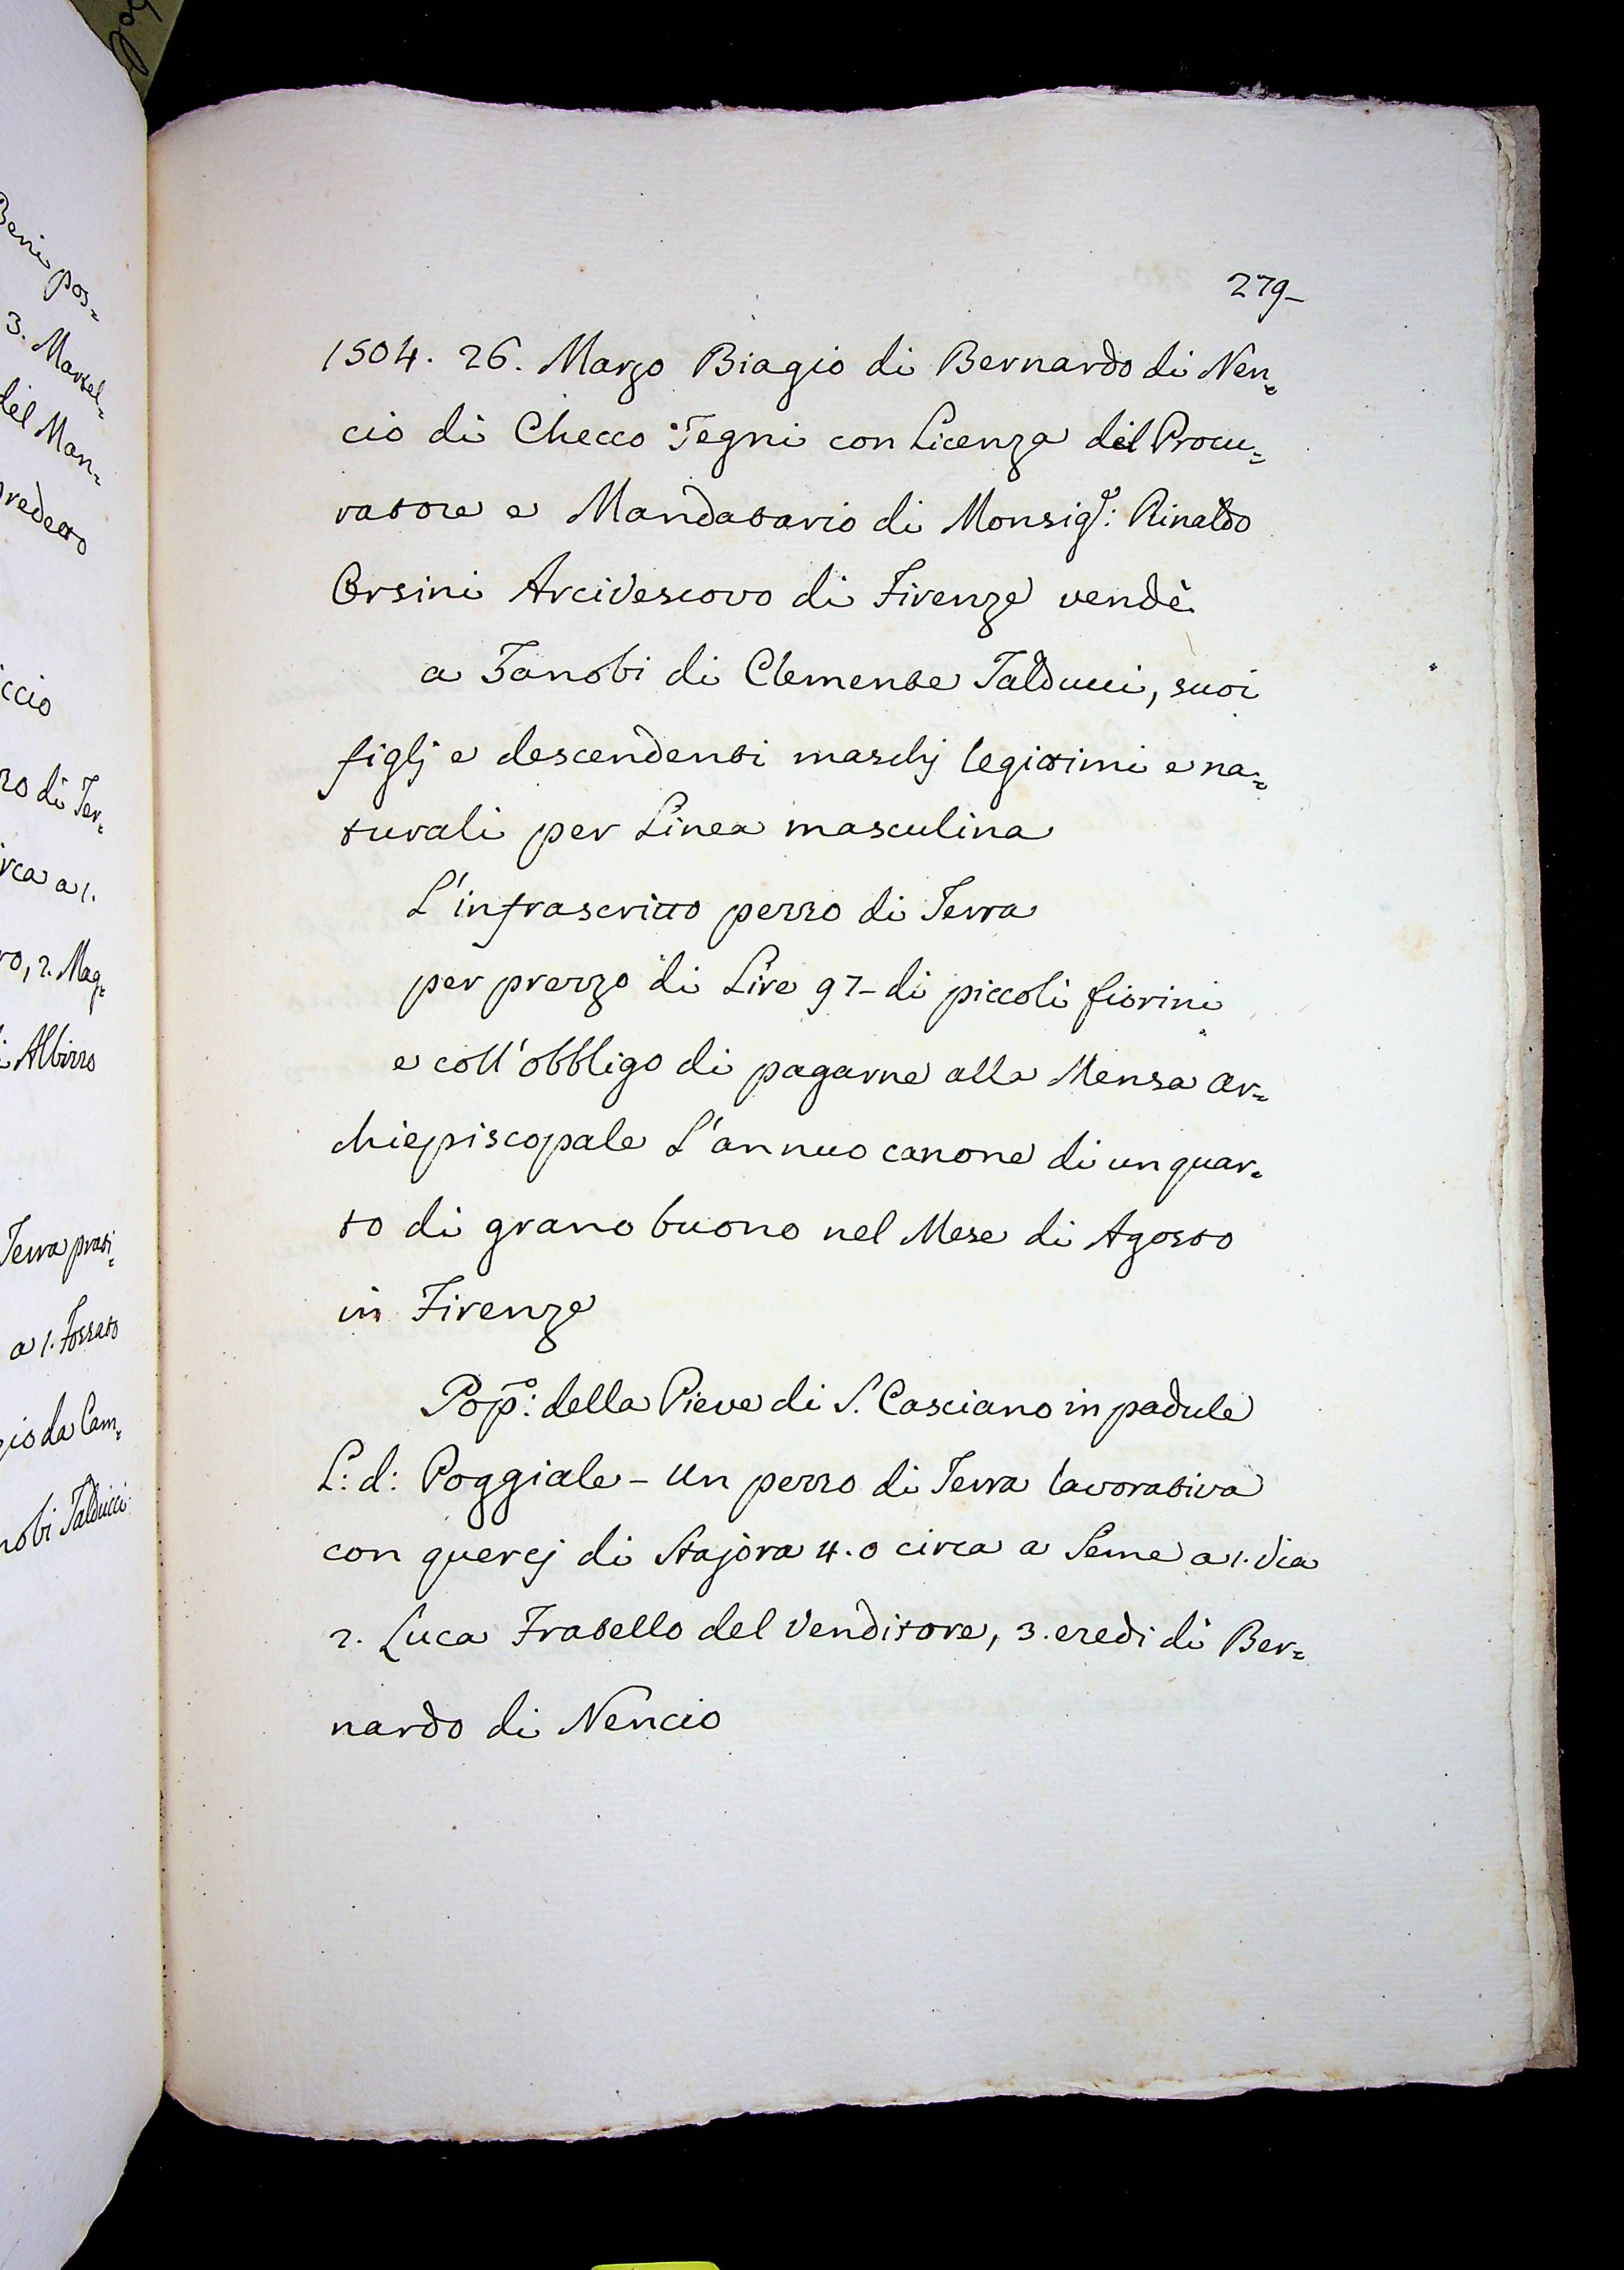 279-
1504. 26. Marzo Biagio di Bernardo di Nen=
cio di Checco Tegni con Licenza del Procu=
ratore e Mandatario di Monsigr.: Rinaldo
Orsini Arcivescovo di Firenze vendè
a Zanobi di Clemente Talducci, suoi
figlj e descendenti maschj legittimi e na=
turali per Linea masculina
L'infrascritto pezzo di Terra
per prezzo di Lire 97- di piccoli fiorini
e coll'obbligo di pagarne alla Mensa ar=
chiepiscopale L'annuo canone di un quar=
to di grano buono nel Mese di Agosto
in Firenze
Popo: della Pieve di S. Casciano in padule
L: d: Poggiale - Un pezzo di Terra lavorativa
con quercj di Stajora 4.0 circa a Seme a 1. Via
2. Luca Fratello del Venditore, 3. eredi di Ber=
nardo di Nencio
Beni pos=
3. Marsel=
del Man=
predetto
ccio
zo di Ter=
irca a 1.
ro, 2. Mag=
i Albizzo
Terra prati=
a 1. Fossato
gio da Cam=
nobi Talducci